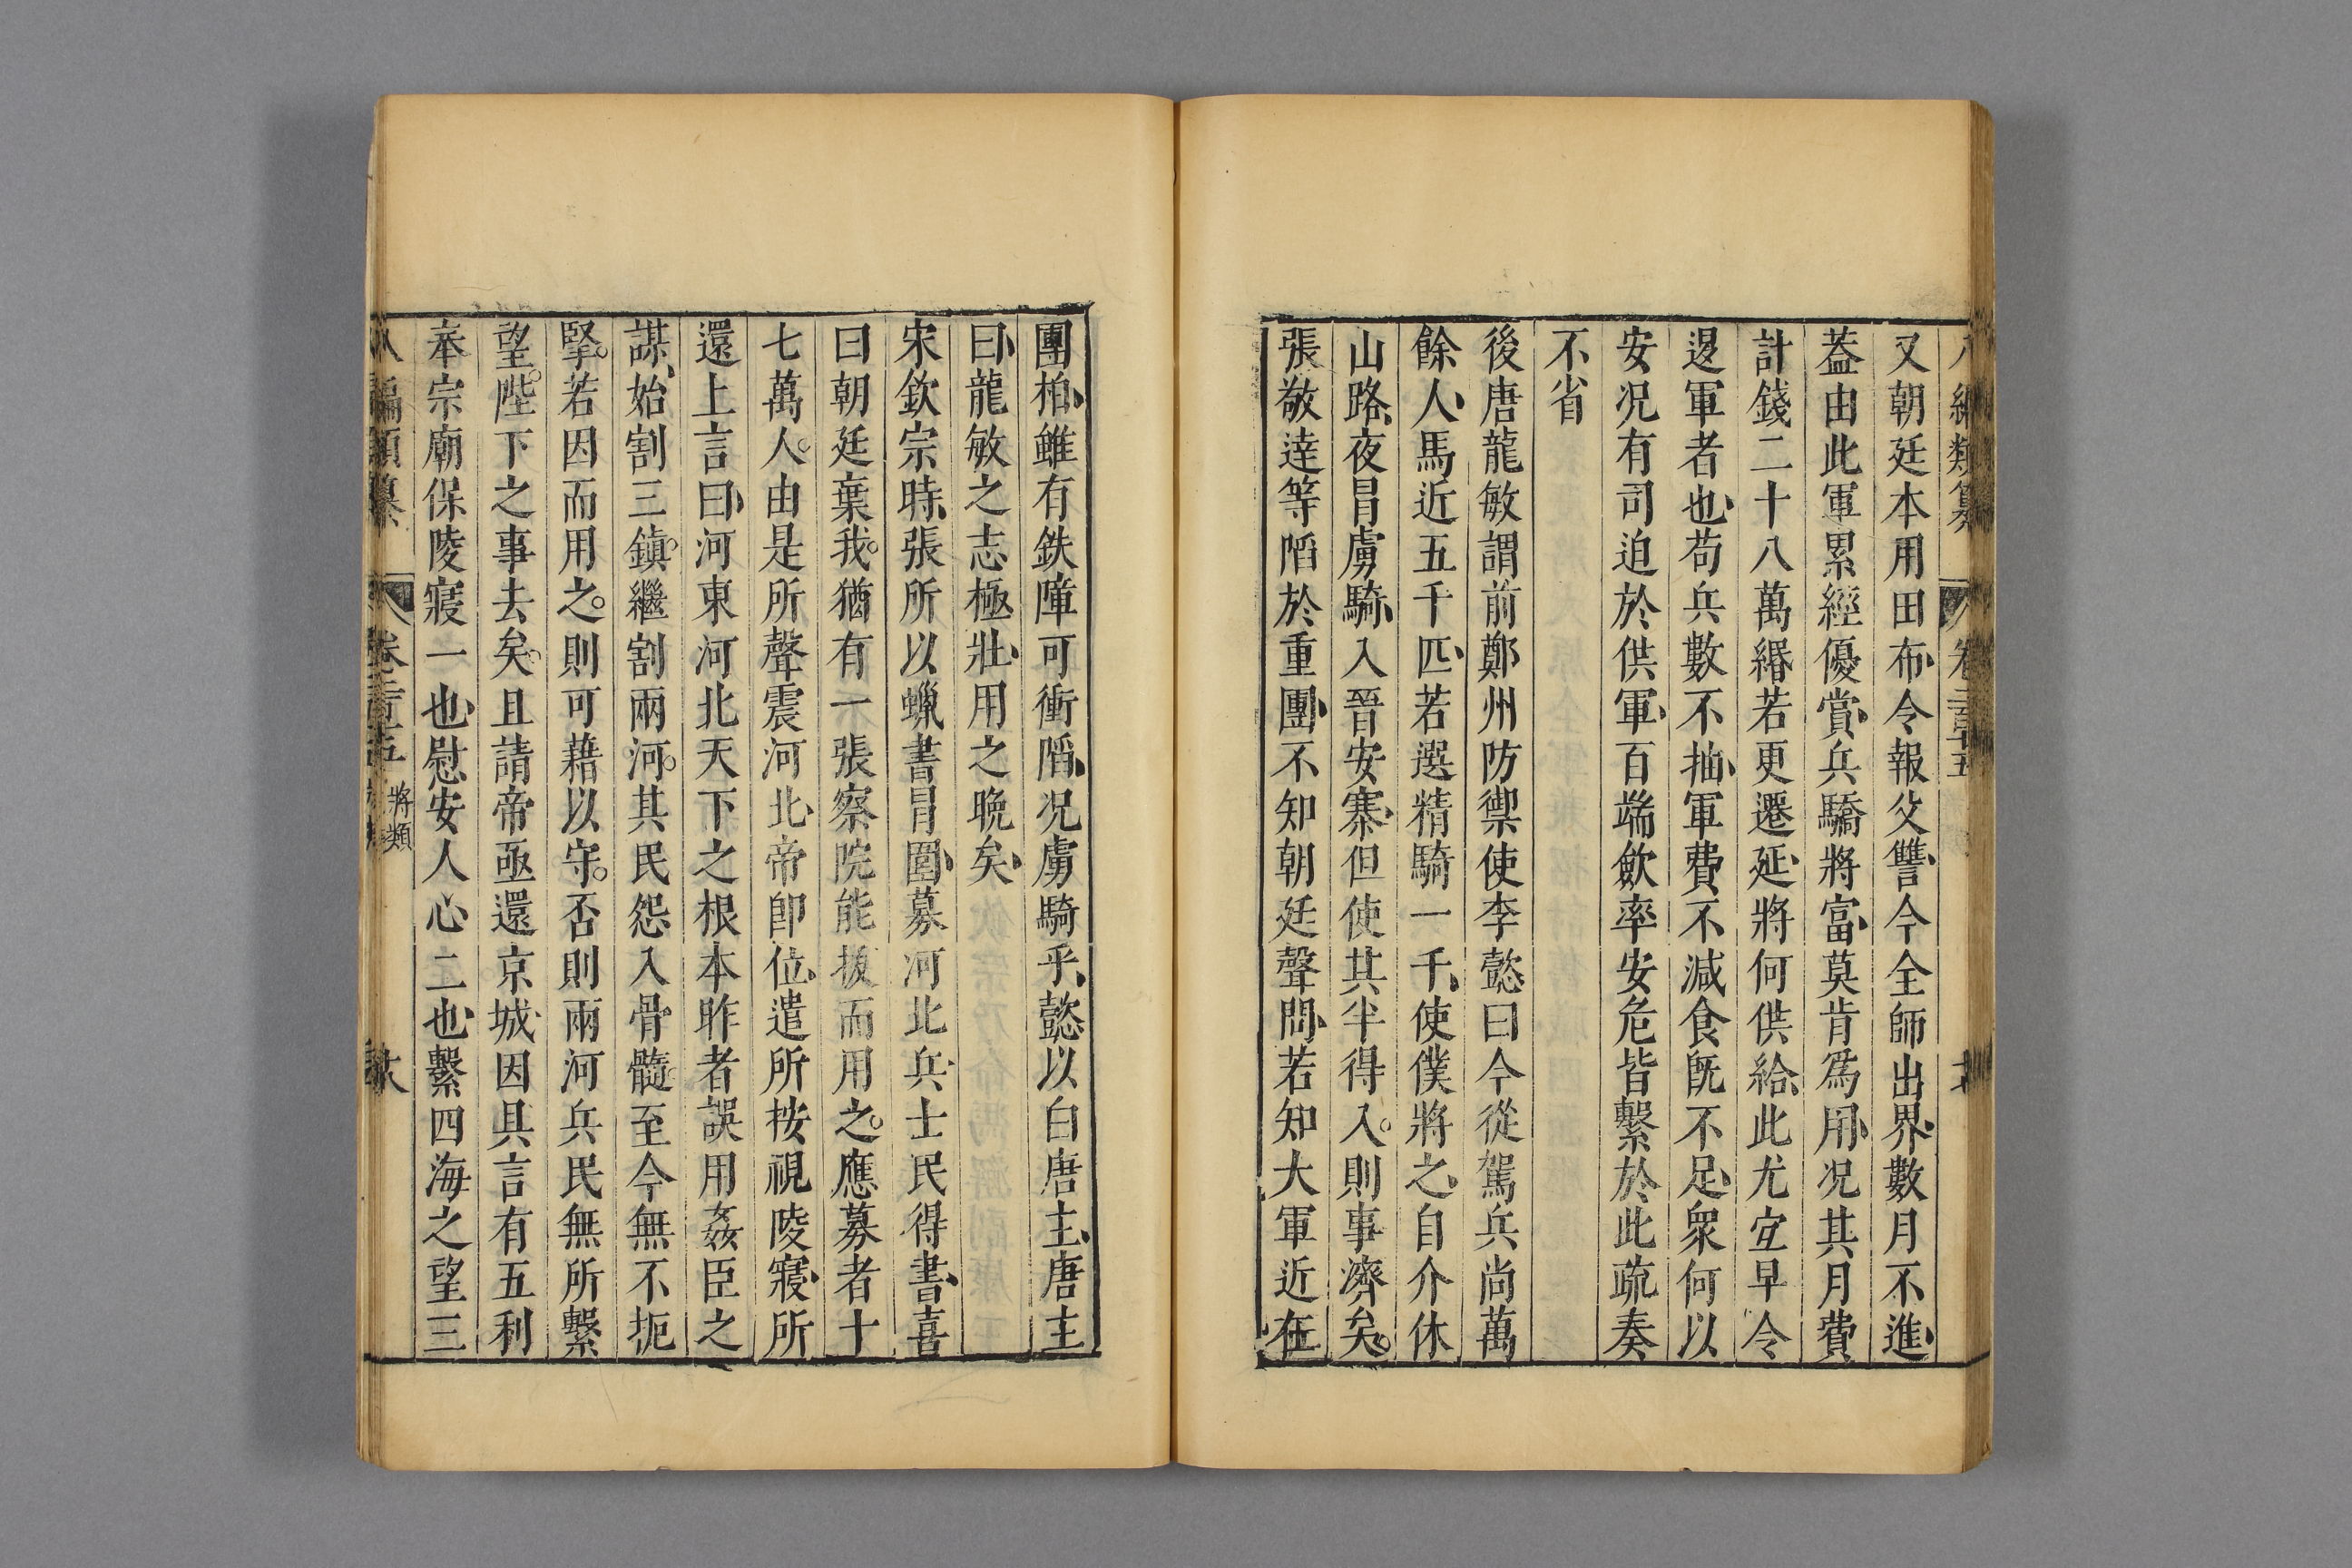 又朝廷本用田布令報父讐今全師出界數月不進
葢由此軍累經優賞兵驕將富莫肯爲用况其月費
計錢二十八萬緡若更遷延將何供給此尤宜早令
邊軍者也苟兵數不抽軍費不減食旣不足衆何以
安况有司迫於供軍百端歛率安危皆繫於此疏奏
不省
後唐龍敏謂前鄭州防禦使李懿曰今從駕兵尚萬
餘人馬近五千匹若選精騎一千使僕將之自介休
山路夜冒虜騎入晉安寨但使其半得入則事濟矣
張敬達等䧟於重圍不知朝廷聲問若知大軍近在
團柏雖有鉄障可衝䧟况虜騎乎懿以白唐主唐主
曰龍敏之志極壯用之晚矣
宋欽宗時張所以蠟書冒圍募河北兵士民得書喜
曰朝廷棄我猶有一張察院能拔而用之應募者十
七萬人由是所聲震河北帝卽位遣所按視陵寢所
還上言曰河東河北天下之根本昨者誤用姦臣之
謀始割三鎮繼割兩河其民怨入骨髓至今無不扼
掔若因而用之則可藉以守否則兩河兵民無所繫
望陛下之事去矣且請帝亟還京城因具言有五利
奉宗廟保陵寢一也慰安人心二也繫四海之望三
八編類纂
卷二百五
將類